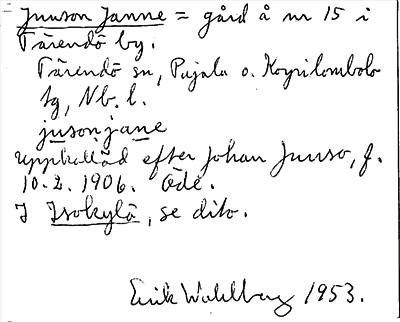 Juuson Janne = gård å nr 15 i
Tärendö by.
Tärendö sn, Pajala o. Korpilombolo
tg, Nb. l.
jusonjane
Uppkallad efter Johan Juuso, f.
10.2.1906. Öde.
I Isokylä, se dito.
Erik Wahlberg 1953.